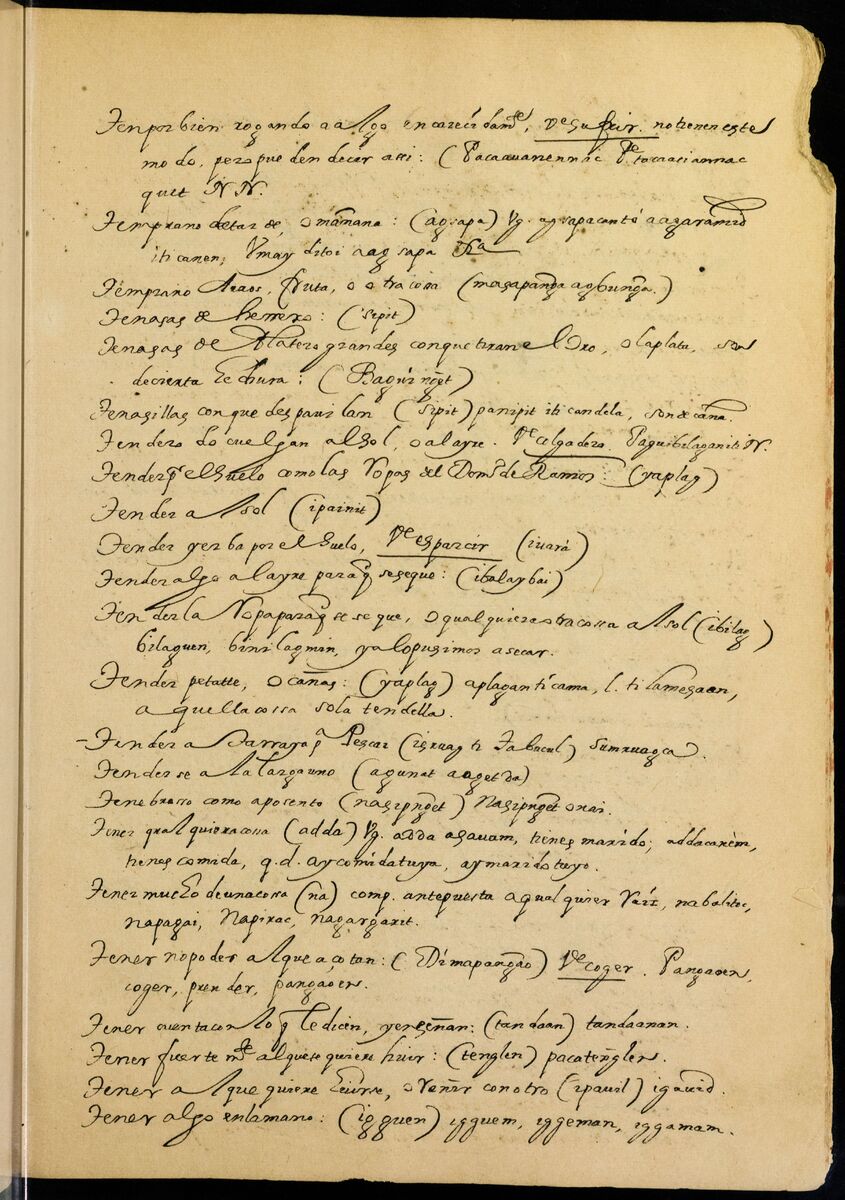 Ten por bien rogando a algo encarecidamte, Ve sufrir. no tienen este
modo, pero pueden decir assi: (Pacaauanennac
quet NN.
Temprano de tarde, o mañana: (agsapa) Vg. agsapacanto
iti canen, Vmay ditoi aagsapa
Temprano Acaos, fruta, o otra cosa (magapanga agbunga.)
Tenasas de herrero: (sipit)
Tenasas de Platero grandes con que tiran el Oro, o la plata, son
de cierta hechura: (
Tenasillas con que despauilan (sipit) panipit iti candela, son de caña.
Tendero do cuelgan al Sol, o al ayre. Ve colgadero. Paguibilaganiti N.
Tender pr el suelo como las Ropas del Domo de Ramos: (yaplag)
Tender al sol (ipainit)
Tender yerba por el suelo, Ve esparcir (iuara)
Tender algo al ayre para q se seque: (ibalaybai)
Tender la Ropa para q se seque, o qualquiera otra cossa al sol (ibilag)
bilaguen, binilagmin, ya lo pusimos a secar.
Tender petatte, o cañas: (yaplag) aplaganticama, l. ti lamesaan,
aquella cossa sola tendella.
Tender atarraya pa Pescar (isruag ti Tabucul) sumruagca.
Tenderse a la larga uno (agunat aagetda)
Tenebrosso como aposento (nasipnget) Nasipnget onai.
Tener qualquiera cosa (adda) Vg. adda asauam, tienes marido; addacanèm,
tienes comida, q.d. ay comida tuya, ay marido tuyo.
Tener mucho de una cosa (na) comp. antepuesta a qualquier raiz, nabalitoc,
napagai, Napirac, nagargarit.
Tener no poder al que açotan: (Dimapangao) Ve coger. Pangaoen,
coger, prender, pangaoen.
Tener cuenta con lo q le dicen, y enseñan: (tandaan) tandaanan.
Tener fuertemte al que se quiere huir: (tenglen) pacatenglen.
Tener al que quiere herirse, o reñir con otro (ipauil) igauid.
Tener algo en la mano: (igguen) igguem, iggeman, iggamam.